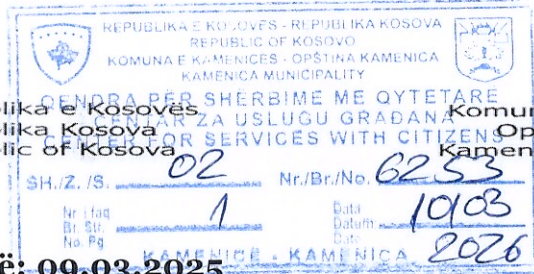 REPUBLIKA E KOSOVËS - REPUBLIKA KOSOVA
REPUBLIC OF KOSOVO
KOMUNA E KAMENICËS - OPŠTINA KAMENICA
KAMENICA MUNICIPALITY
QENDRA PËR SHËRBIME ME QYTETARË
CENTAR ZA USLUGU GRAĐANA
CENTER FOR SERVICES WITH CITIZENS
lika e Kosovës Komun
lika Kosova Op
lic of Kosova Kamen
SH./Z. /S. 02 Nr./Br./No. 6253
Nr i faq
Br. Str.
No. Pg 1
Data
Datum
Date 10/03
2026
KAMENICË - KAMENICA
ë: 09.03.2025